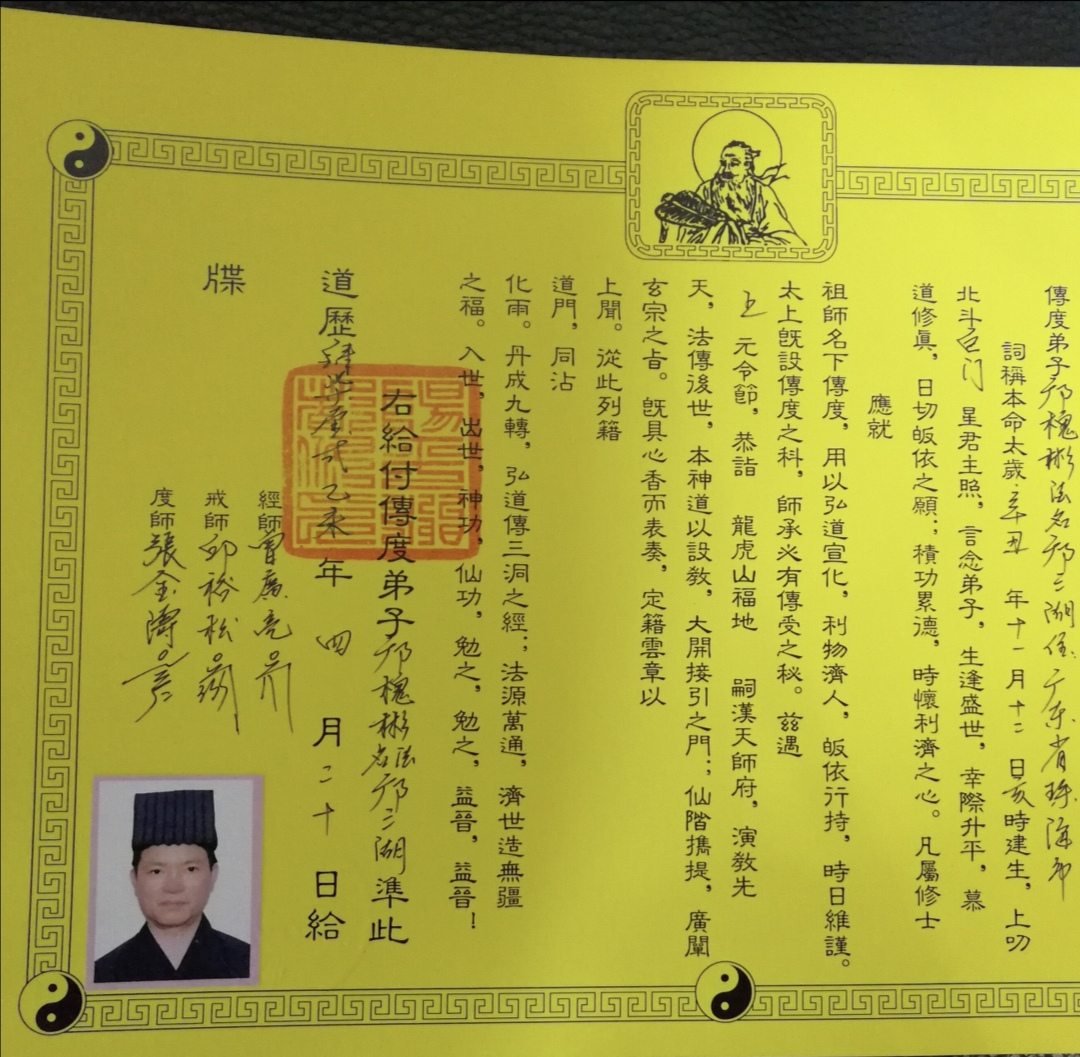 傳度弟子邝槐彬法名邝三湖住广东省珠海市
詞稱本命太歲辛丑 年十一月十二日亥時建生，上叨
北斗巨门 星君主照，言念弟子，生逢盛世，幸際升平，慕
道修眞，日切皈依之願；積功累德，時懷利濟之心。凡屬修士
應就
祖師名下傳度，用以弘道宣化，利物濟人，皈依行持，時日維謹。
太上旣設傳度之科，師承必有傳受之秘。兹遇
上元令節，恭詣 龍虎山福地 嗣漢天師府，演敎先
天，法傳後世，本神道以設敎，大開接引之門；仙階携提，廣闡
玄宗之旨。旣具心香而表奏，定籍雲章以
上聞。從此列籍
道門，同沾
化雨。丹成九轉，弘道傳三洞之經；法源萬通，濟世造無疆
之福。入世，出世，神功，仙功，勉之，勉之，益晉，益晉！
右給付傳度弟子邝槐彬法名邝三湖準此
道歷 乙未年 四 月 二十 日給
牒
經師曾廣亮
戒師邱裕松
度師張金濤